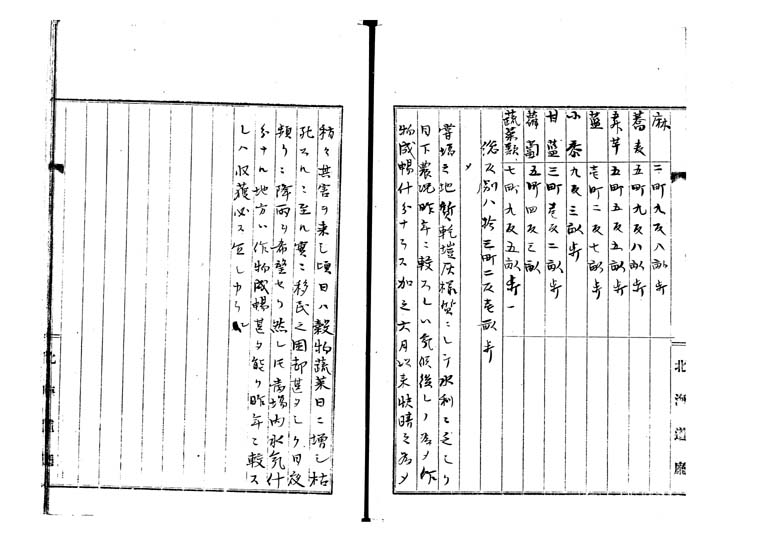 麻 二町九反八畝歩
蕎麦 五町九反八畝歩
五町五反五畝歩
藍 壱町二反七畝歩
小 九反三畝歩
甘藍 三町壱反二畝歩
蘿蔔 五町四反三畝
蔬菜類 七町九反五畝歩
総反別八拾三町二反壱畝歩
当場之地質乾 灰様質ニシテ水利ニ乏シク
目下農況昨年ニ較スレハ気候後レノ為メ作
物成暢什分ナラス加之六月以来快晴之為メ
北海道庁
種々其害ヲ来シ頃日ハ穀物蔬菜日ニ増シ枯
死スルニ至ル実ニ移民之困却甚タシク日夜
頻リニ降雨ヲ希望セリ然レ共当場内水気什
分ナル地方ハ作物成暢甚タ能ク昨年ニ較ス
レハ収穫必ス